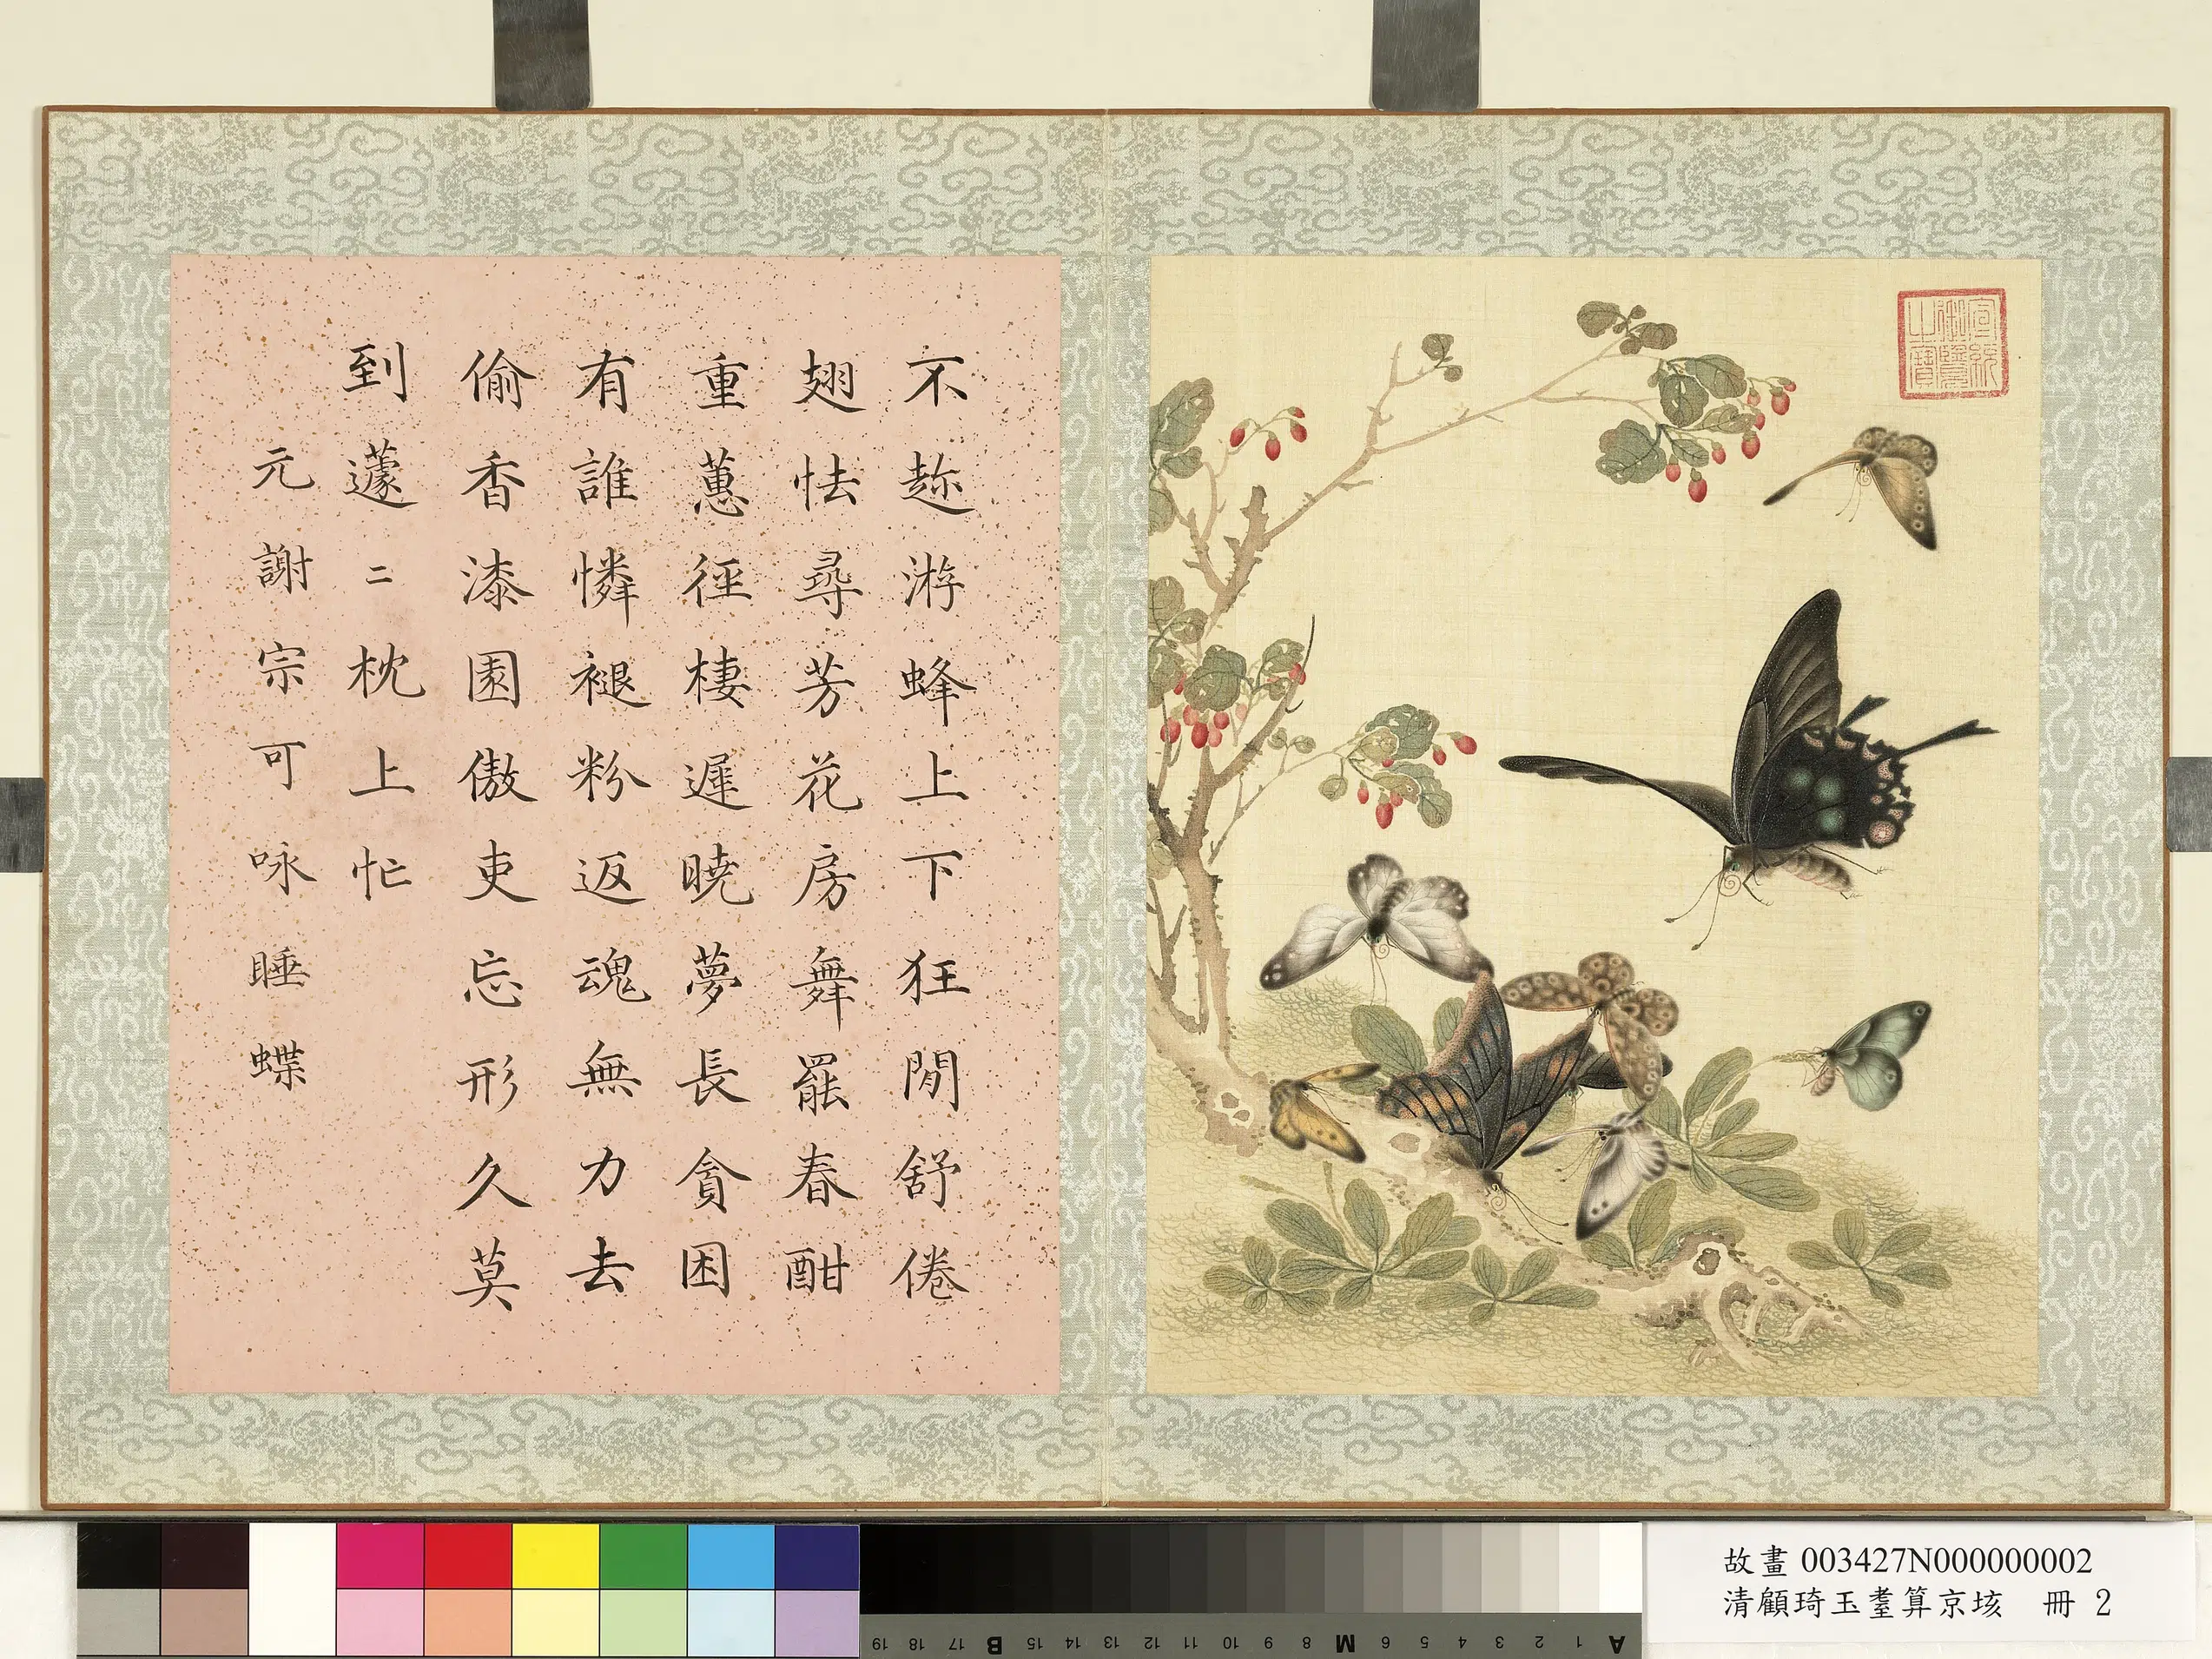 不趂游蜂上下狂閒舒倦
翅怯尋芳花房舞罷春酣
重蕙徑棲遲曉夢長貪困
有誰憐褪粉返魂無力去
偷香漆園傲吏忘形久莫
到蘧二枕上忙
元謝宗可咏睡蝶
宣統
御覽
之寶
故畫 003427N000000002
清顧琦玉耋算京垓 冊 2
A 1 2 3 4 5 6 M 8 9 10 11 12 13 14 15 B 17 18 19